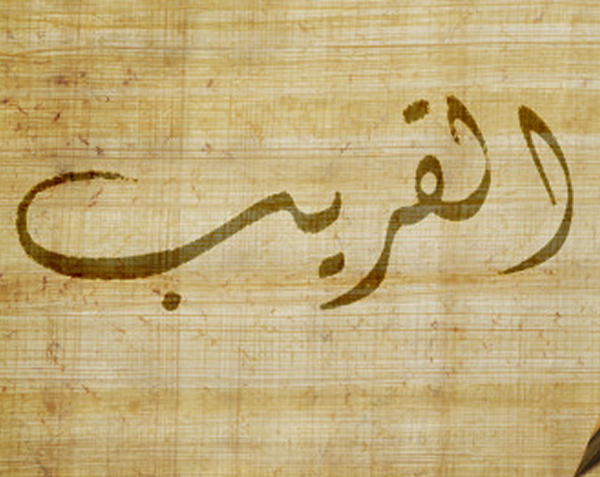 القريب